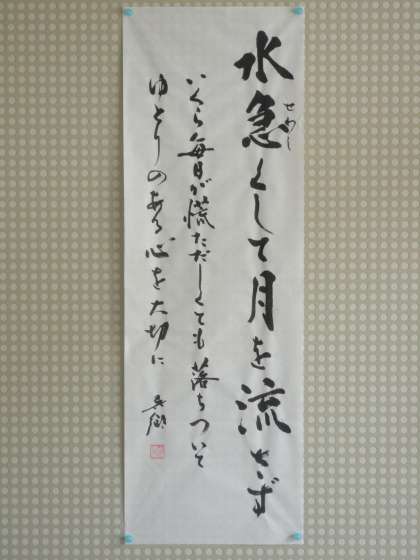 水急くして月を流さず
せわし
いくら毎日が慌ただしくても落ちついて
ゆとりのある心を大切に